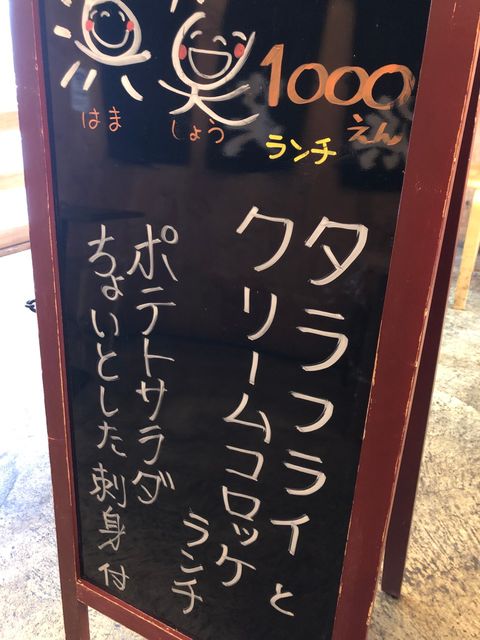 浜笑
はま しょう
1000
えん
ランチ
タラフライと
クリームコロッケ
ランチ
ポテトサラダ
ちょいとした刺身付